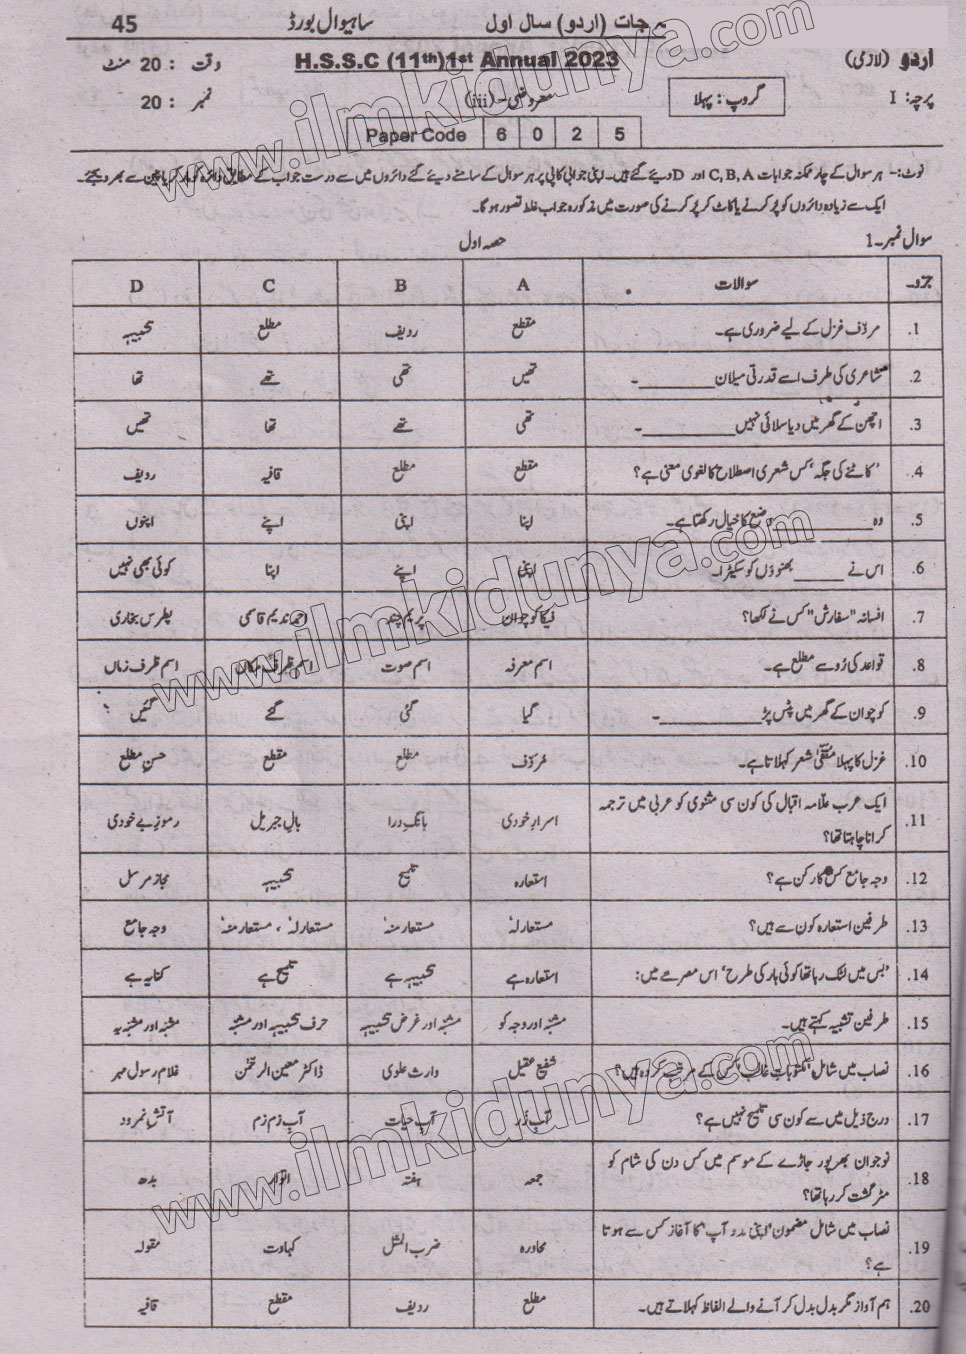 جات (اردو) سال اول ساہیوال بورڈ 45
اردو (لازمی) H.S.S.C (11th)1st Annual 2023 وقت : 20 منٹ
پرچہ: I گروپ: پہلا معروضی-(iii) نمبر : 20
Paper Code 6 0 2 5
نوٹ:- ہر سوال کے چار ممکنہ جوابات C, B, A اور D دیئے گئے ہیں۔ اپنی جوابی کاپی پر ہر سوال کے سامنے دیئے گئے دائروں میں سے درست جواب کے مطابق دائرہ کو مارکر یا پین سے بھر دیجئے۔
ایک سے زیادہ دائروں کو پُر کرنے یا کاٹ کر پُر کرنے کی صورت میں مذکورہ جواب غلط تصور ہو گا۔
سوال نمبر-1 حصہ اول
جزو۔ سوالات A B C D
1. مردّف غزل کے لیے ضروری ہے۔ مقطع ردیف مطلع تشبیہہ
2. شاعری کی طرف اسے قدرتی میلان ________۔ تھیں تھی تھے تھا
3. اچھن کے گھر میں دیا سلائی نہیں ________۔ تھی تھے تھا تھیں
4. 'کاٹنے کی جگہ' کس شعری اصطلاح کا لغوی معنی ہے؟ مقطع مطلع قافیہ ردیف
5. وہ ________ وضع کا خیال رکھتا ہے۔ اپنا اپنی اپنے اپنوں
6. اس نے ______ بھنوؤں کو سکیڑا۔ اپنی اپنے اپنا کوئی بھی نہیں
7. افسانہ "سفارش" کس نے لکھا؟ فیکا کوچوان پریم چند احمد ندیم قاسمی پطرس بخاری
8. قواعد کی رُو سے مطلع ہے۔ اسم معرفہ اسم صوت اسم ظرف مکاں اسم ظرف زماں
9. کوچوان کے گھر میں پٹس پڑ ________۔ گیا گئی گئے گئیں
10. غزل کا پہلا مقفّیٰ شعر کہلاتا ہے۔ مُردّف مطلع مقطع حسنِ مطلع
11. ایک عرب علّامہ اقبال کی کون سی مثنوی کو عربی میں ترجمہ
کرانا چاہتا تھا؟ اسرارِ خودی بانگِ درا بالِ جبریل رموزِ بے خودی
12. وجہ جامع کس کا رکن ہے؟ استعارہ تلمیح تشبیہہ مجاز مرسل
13. طرفین استعارہ کون سے ہیں؟ مستعار لہٗ مستعار منہٗ مستعار لہٗ ، مستعار منہٗ وجہ جامع
14. 'بس میں لٹک رہا تھا کوئی ہار کی طرح' اس مصرعے میں: استعارہ ہے تشبیہہ ہے تلمیح ہے کنایہ ہے
15. طرفین تشبیہ کہتے ہیں۔ مشبّہ اور وجہ کو مشبّہ اور غرض تشبیہہ حرف تشبیہہ اور مشبّہ مشبّہ اور مشبّہ بہ
16. نصاب میں شامل "مکتوباتِ غالب" کس کے مرتب کردہ ہیں؟ شفیع عقیل وارث علوی ڈاکٹر معین الرحمٰن غلام رسول مہر
17. درج ذیل میں سے کون سی تلمیح نہیں ہے؟ آبِ زر آبِ حیات آبِ زم زم آتشِ نمرود
18. نوجوان بھرپور جاڑے کے موسم میں کس دن کی شام کو
مٹر گشت کر رہا تھا؟ جمعہ ہفتہ اتوار بدھ
19. نصاب میں شامل مضمون 'اپنی مدد آپ' کا آغاز کس سے ہوتا
ہے؟ محاورہ ضرب المثل کہاوت مقولہ
20. ہم آواز مگر بدل بدل کر آنے والے الفاظ کہلاتے ہیں۔ مطلع ردیف مقطع قافیہ
www.ilmkidunya.com
www.ilmkidunya.com
www.ilmkidunya.com